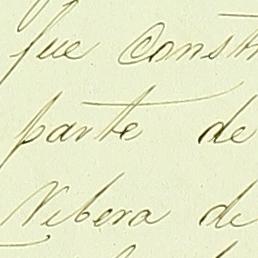 que const
parte de
Ribera de